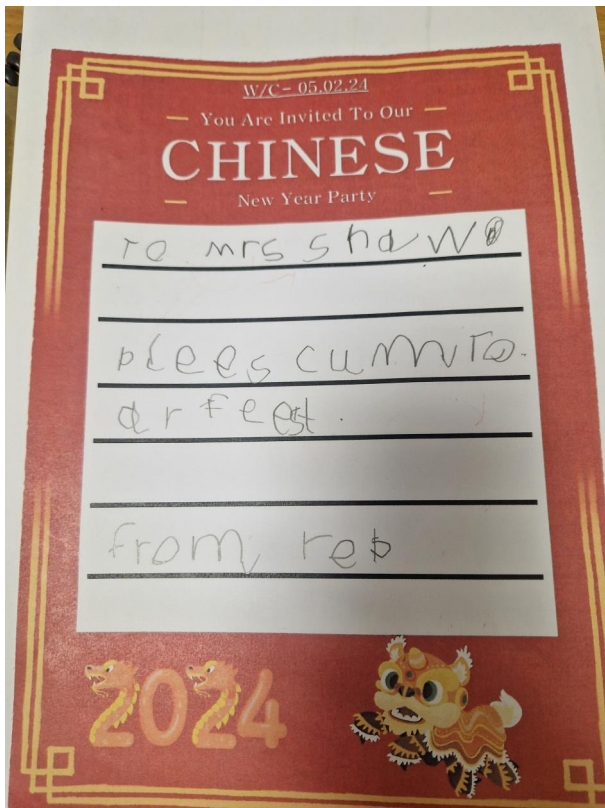 W/C- 05.02.24
You Are Invited To Our
CHINESE
New Year Party
To mrs shaw
plees cum To.
ar feest.
from rep
2024